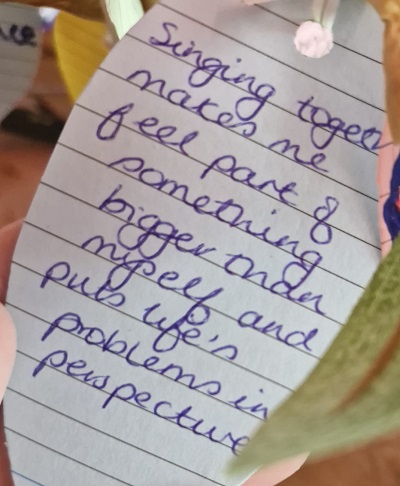 Singing togeth
makes me
feel part of
something
bigger than
myself and
puts life's
problems in
perspective